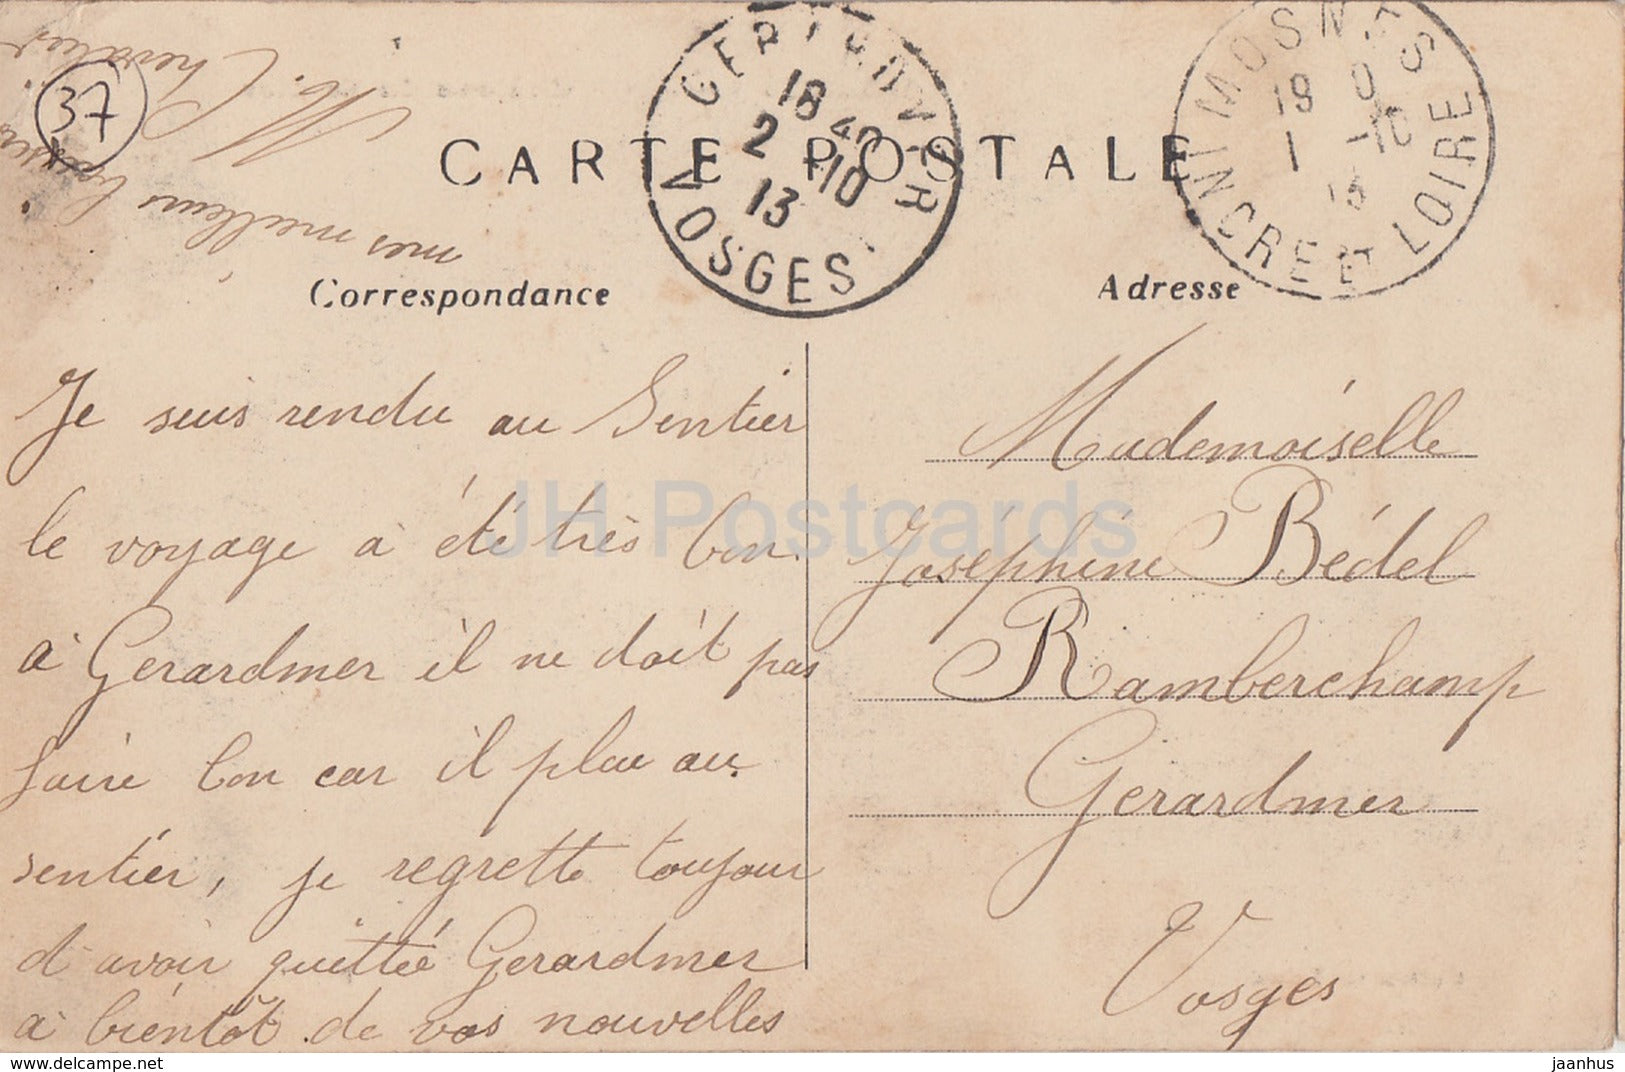 37
M. Chevalier
mes meilleurs baisers
CARTE POSTALE
GERARDMER
18 40
2 -10
13
VOSGES
MOSNES
19 0
1 -10
13
INDRE ET LOIRE
Correspondance
Adresse
Je suis rendu au Sentier
le voyage a été très bon.
à Gerardmer il ne doit pas
faire bon car il pleu au
sentier, je regrette toujour
d'avoir quittée Gerardmer
à bientôt de vos nouvelles
Mademoiselle
Joséphine Bédel
Ramberchamp
Gerardmer
Vosges
JH Postcards
www.delcampe.net
jaanhus